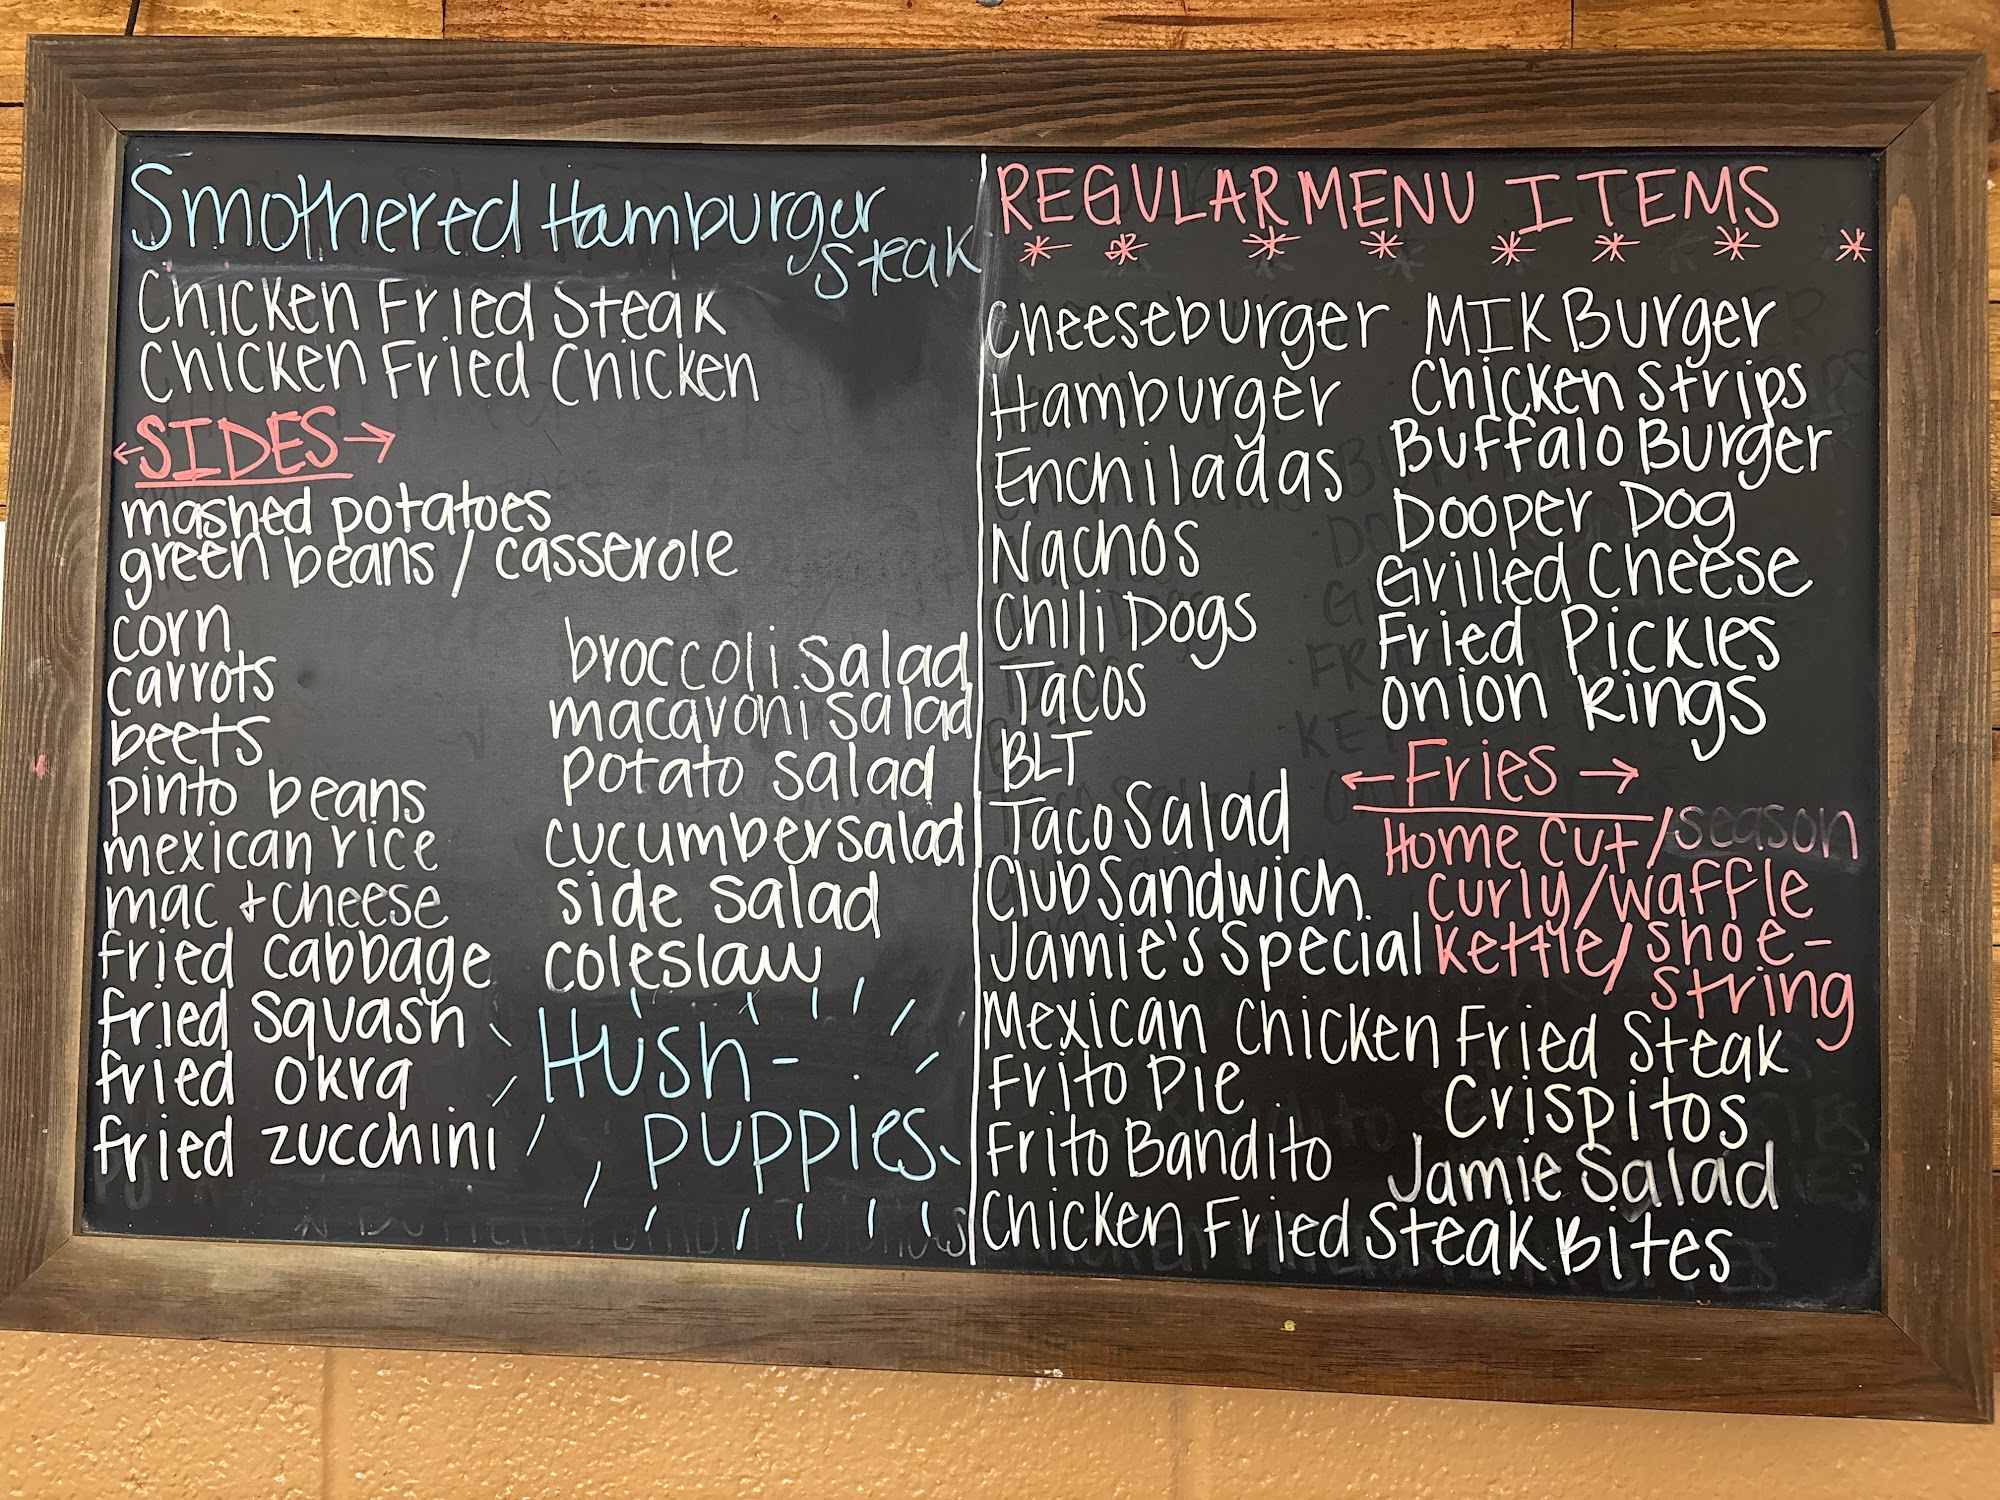 Smothered Hamburger
Steak
Chicken Fried Steak
Chicken Fried Chicken
SIDES
mashed potatoes
green beans / casserole
corn
carrots
beets
pinto beans
mexican rice
mac + cheese
fried cabbage
fried squash
fried okra
fried zucchini
broccoli salad
macaroni salad
potato salad
cucumber salad
side salad
coleslaw
Hush-
puppies
REGULAR MENU ITEMS
Cheeseburger
Hamburger
Enchiladas
Nachos
Chili Dogs
Tacos
BLT
Taco Salad
Club Sandwich
Jamie's Special
MIK Burger
Chicken Strips
Buffalo Burger
Dooper Dog
Grilled Cheese
Fried Pickles
Onion Rings
Fries
Home Cut/season
Curly/Waffle
Kettle/Shoe-
string
Mexican Chicken Fried Steak
Frito Pie
Crispitos
Frito Bandito
Jamie Salad
Chicken Fried Steak Bites